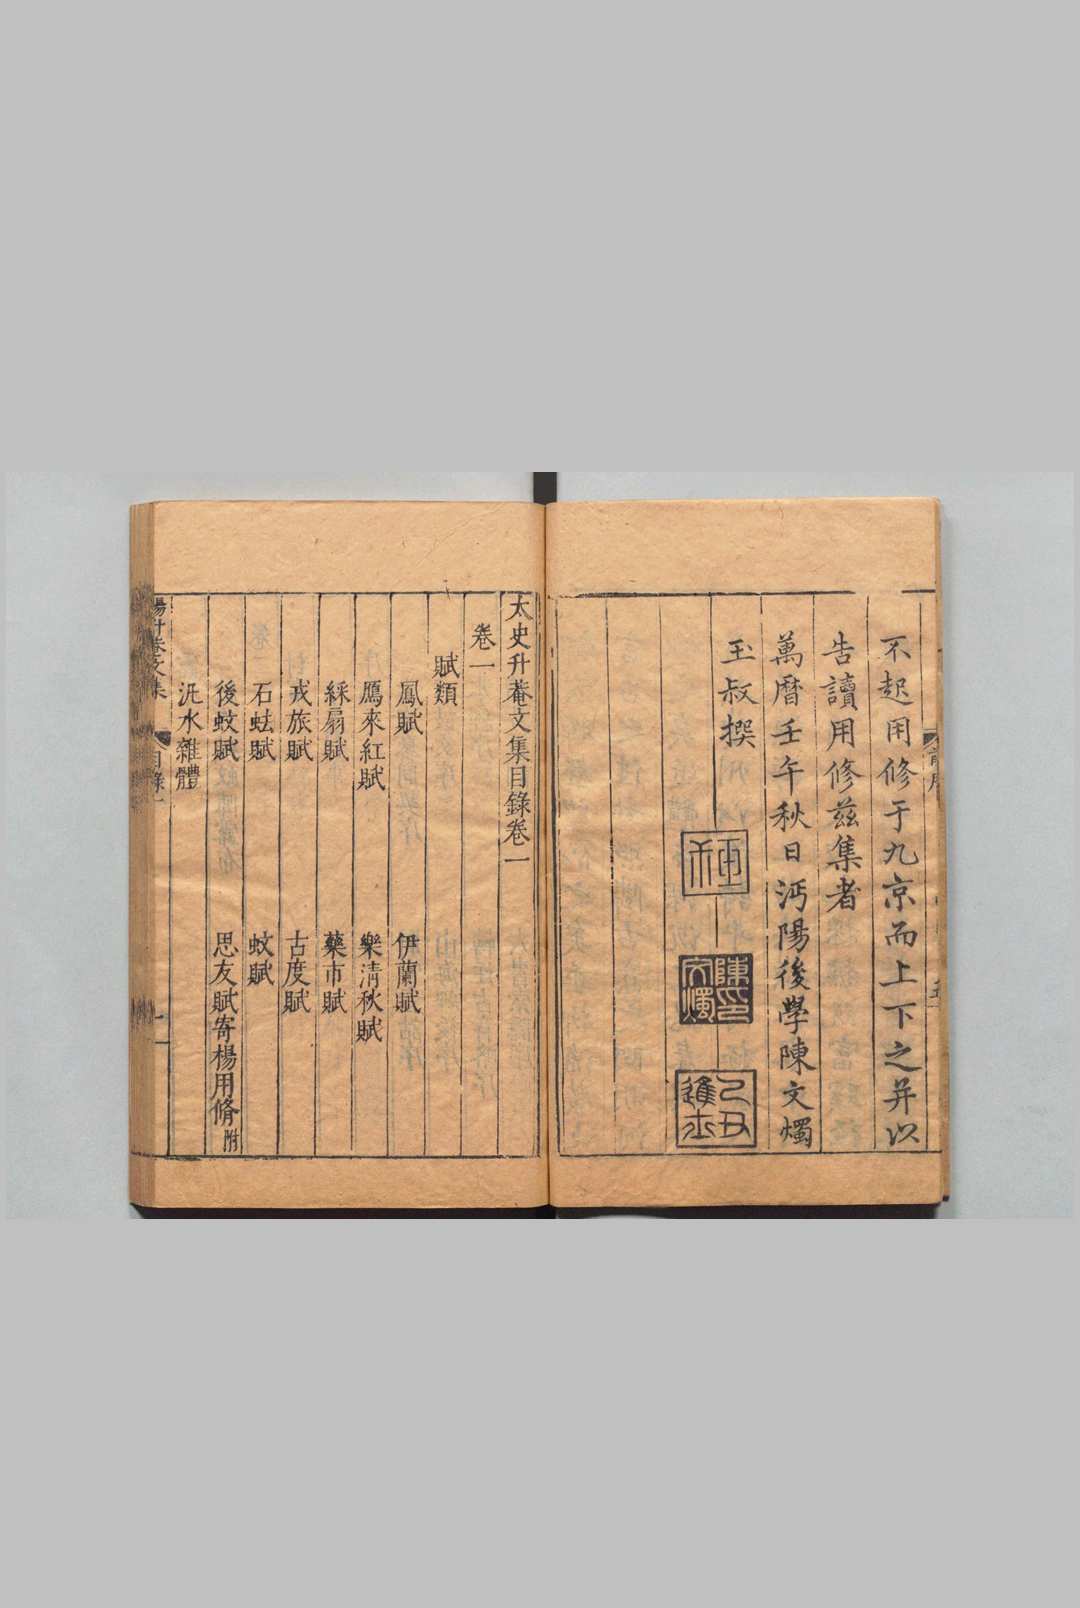 不起用修于九京而上下之并以
告讀用修茲集者
萬曆壬午秋日沔陽後學陳文燭
玉叔撰
陳氏文燭
己丑進士
太史升菴文集目錄卷一
卷一
賦類
鳳賦 伊蘭賦
鴈來紅賦 樂清秋賦
綵扇賦 藥市賦
戎旅賦 古度賦
石蛣賦 蚊賦
後蚊賦 思友賦寄楊用脩附
汎水雜體
目錄一